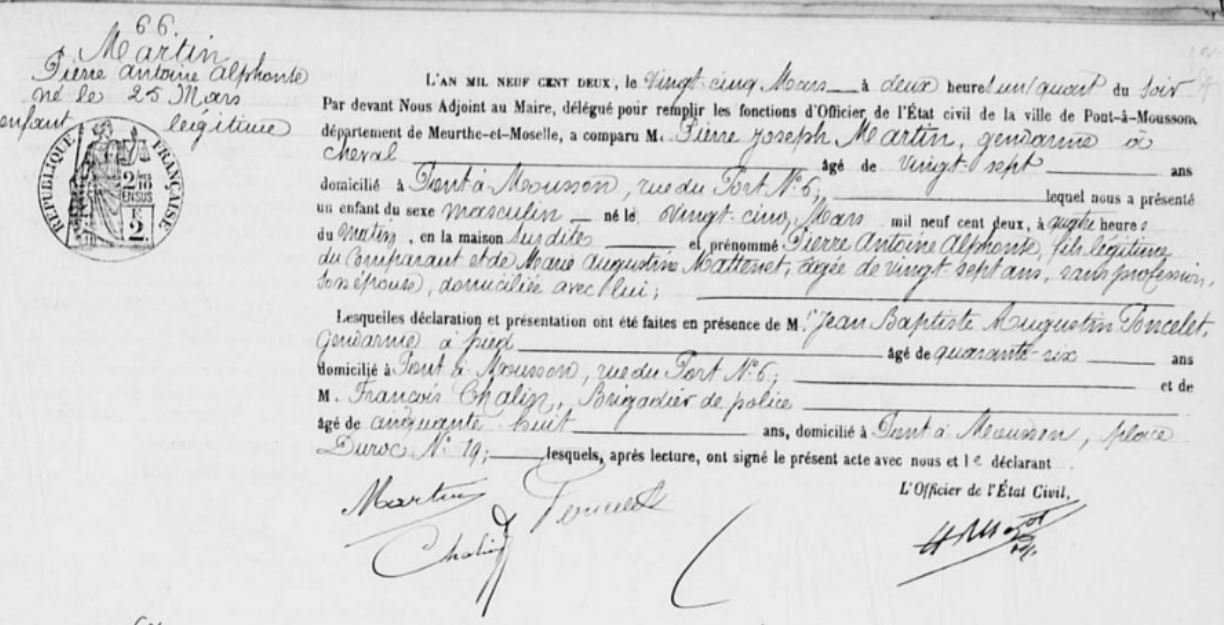 66.
Martin
Pierre Antoine Alphonse
né le 25 Mars
enfant légitime
RÉPUBLIQUE FRANÇAISE
2/10
EN SUS
E
2.
L'AN MIL NEUF CENT DEUX, le Vingt cinq Mars à deux heures un quart du soir
Par devant Nous Adjoint au Maire, délégué pour remplir les fonctions d'Officier de l'État civil de la ville de Pont-à-Mousson,
département de Meurthe-et-Moselle, a comparu M. Pierre Joseph Martin, gendarme à
cheval âgé de vingt sept ans
domicilié à Pont à Mousson, rue du Port N° 6, lequel nous a présenté
un enfant du sexe masculin né le vingt cinq Mars mil neuf cent deux, à quatre heures
du matin, en la maison susdite et prénommé Pierre Antoine Alphonse, fils légitime
du Comparant et de Marie Augustine Mattenet, âgée de vingt sept ans, sans profession,
son épouse, domiciliée avec lui;
Lesquelles déclaration et présentation ont été faites en présence de M. Jean Baptiste Augustin Poncelet,
Gendarme à pied âgé de quarante-six ans
domicilié à Pont à Mousson, rue du Port N° 6; et de
M. François Chalin, Brigadier de police
âgé de cinquante huit ans, domicilié à Pont à Mousson, place
Duroc N° 19; lesquels, après lecture, ont signé le présent acte avec nous et le déclarant
L'Officier de l'État Civil,
Martin
Chalin